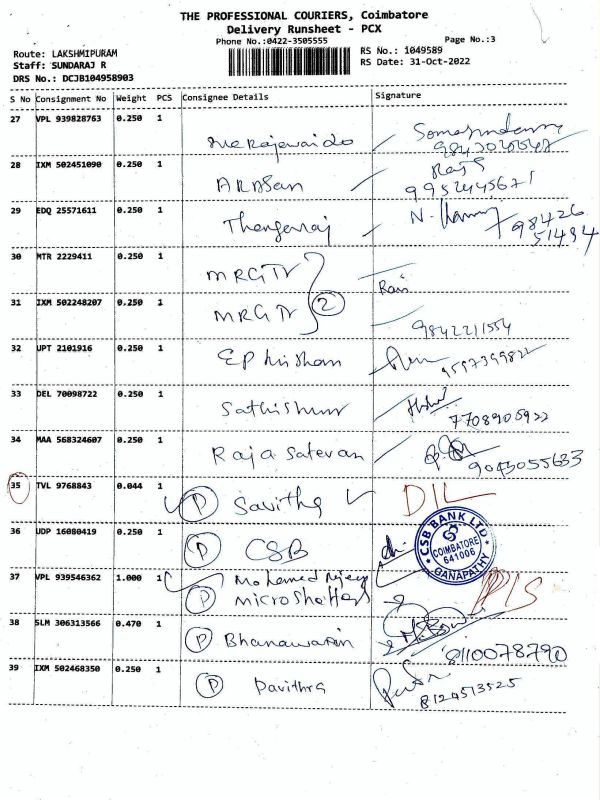 THE PROFESSIONAL COURIERS, Coimbatore
Delivery Runsheet - PCX
Phone No.:0422-3505555
Page No.:3
Route: LAKSHMIPURAM
RS No.: 1049589
Staff: SUNDARAJ R
RS Date: 31-Oct-2022
DRS No.: DCJB104958903
S No Consignment No Weight PCS Consignee Details Signature
27 VPL 939828763 0.250 1
28 IXM 502451090 0.250 1 ARASan 9952445671
29 EDQ 25571611 0.250 1 Thangaraj 98426
51494
30 MTR 2229411 0.250 1 MRGTV Rani
31 IXM 502248207 0.250 1 MRGTV 2 9842211554
32 UPT 2101916 0.250 1
33 DEL 70098722 0.250 1 7708905922
34 MAA 568324607 0.250 1 Raja Satevan 9043055633
35 TVL 9768843 0.044 1 P Savitha DIL
36 UDP 16080419 0.250 1 P CSB
CSB BANK LTD
COIMBATORE
641006
GANAPATHY
37 VPL 939546362 1.000 1 Mohamed
P
38 SLM 306313566 0.470 1 P 8110078790
39 IXM 502468350 0.250 1 P Pavithra 8124513525